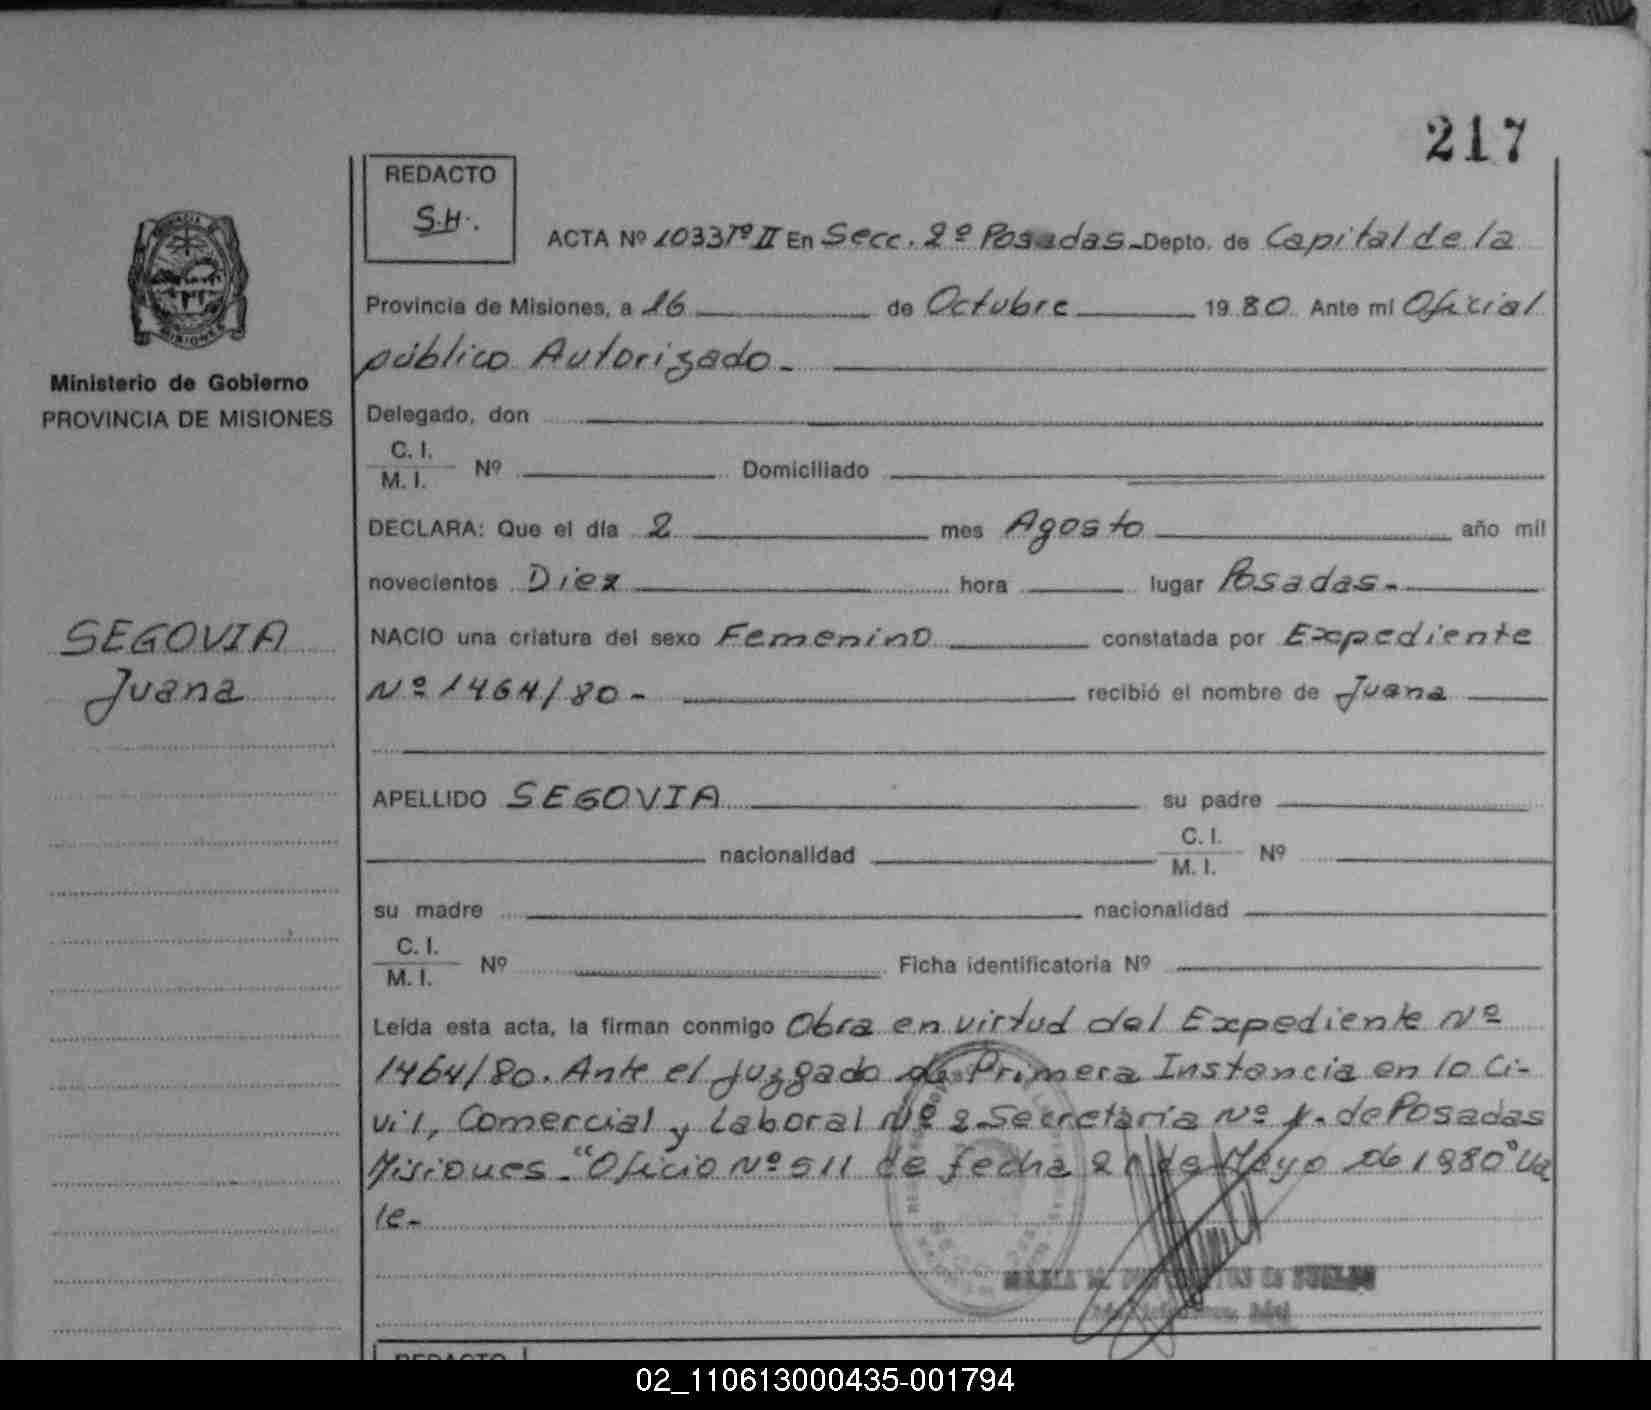 217
REDACTO
S.H.
ACTA Nº 1033 Tº II En Secc. 2º Posadas - Depto. de Capital de la
Provincia de Misiones, a 16 de Octubre 1980 Ante mi Oficial
público Autorizado -
Ministerio de Gobierno
PROVINCIA DE MISIONES
Delegado, don
C. I.
M. I. Nº Domiciliado
DECLARA: Que el día 2 mes Agosto año mil
novecientos Diez hora lugar Posadas -
SEGOVIA
Juana
NACIO una criatura del sexo Femenino constatada por Expediente
Nº 1464/80 - recibió el nombre de Juana
APELLIDO SEGOVIA su padre
nacionalidad C. I. M. I. Nº
su madre nacionalidad
C. I.
M. I. Nº Ficha identificatoria Nº
Leída esta acta, la firman conmigo Obra en virtud del Expediente Nº
1464/80. Ante el Juzgado de Primera Instancia en lo Ci-
vil, Comercial y Laboral Nº 2 - Secretaria Nº 1. de Posadas
Misiones - "Oficio Nº 511 de fecha de Mayo de 1980" Va
le -
REDACTO
02_110613000435-001794